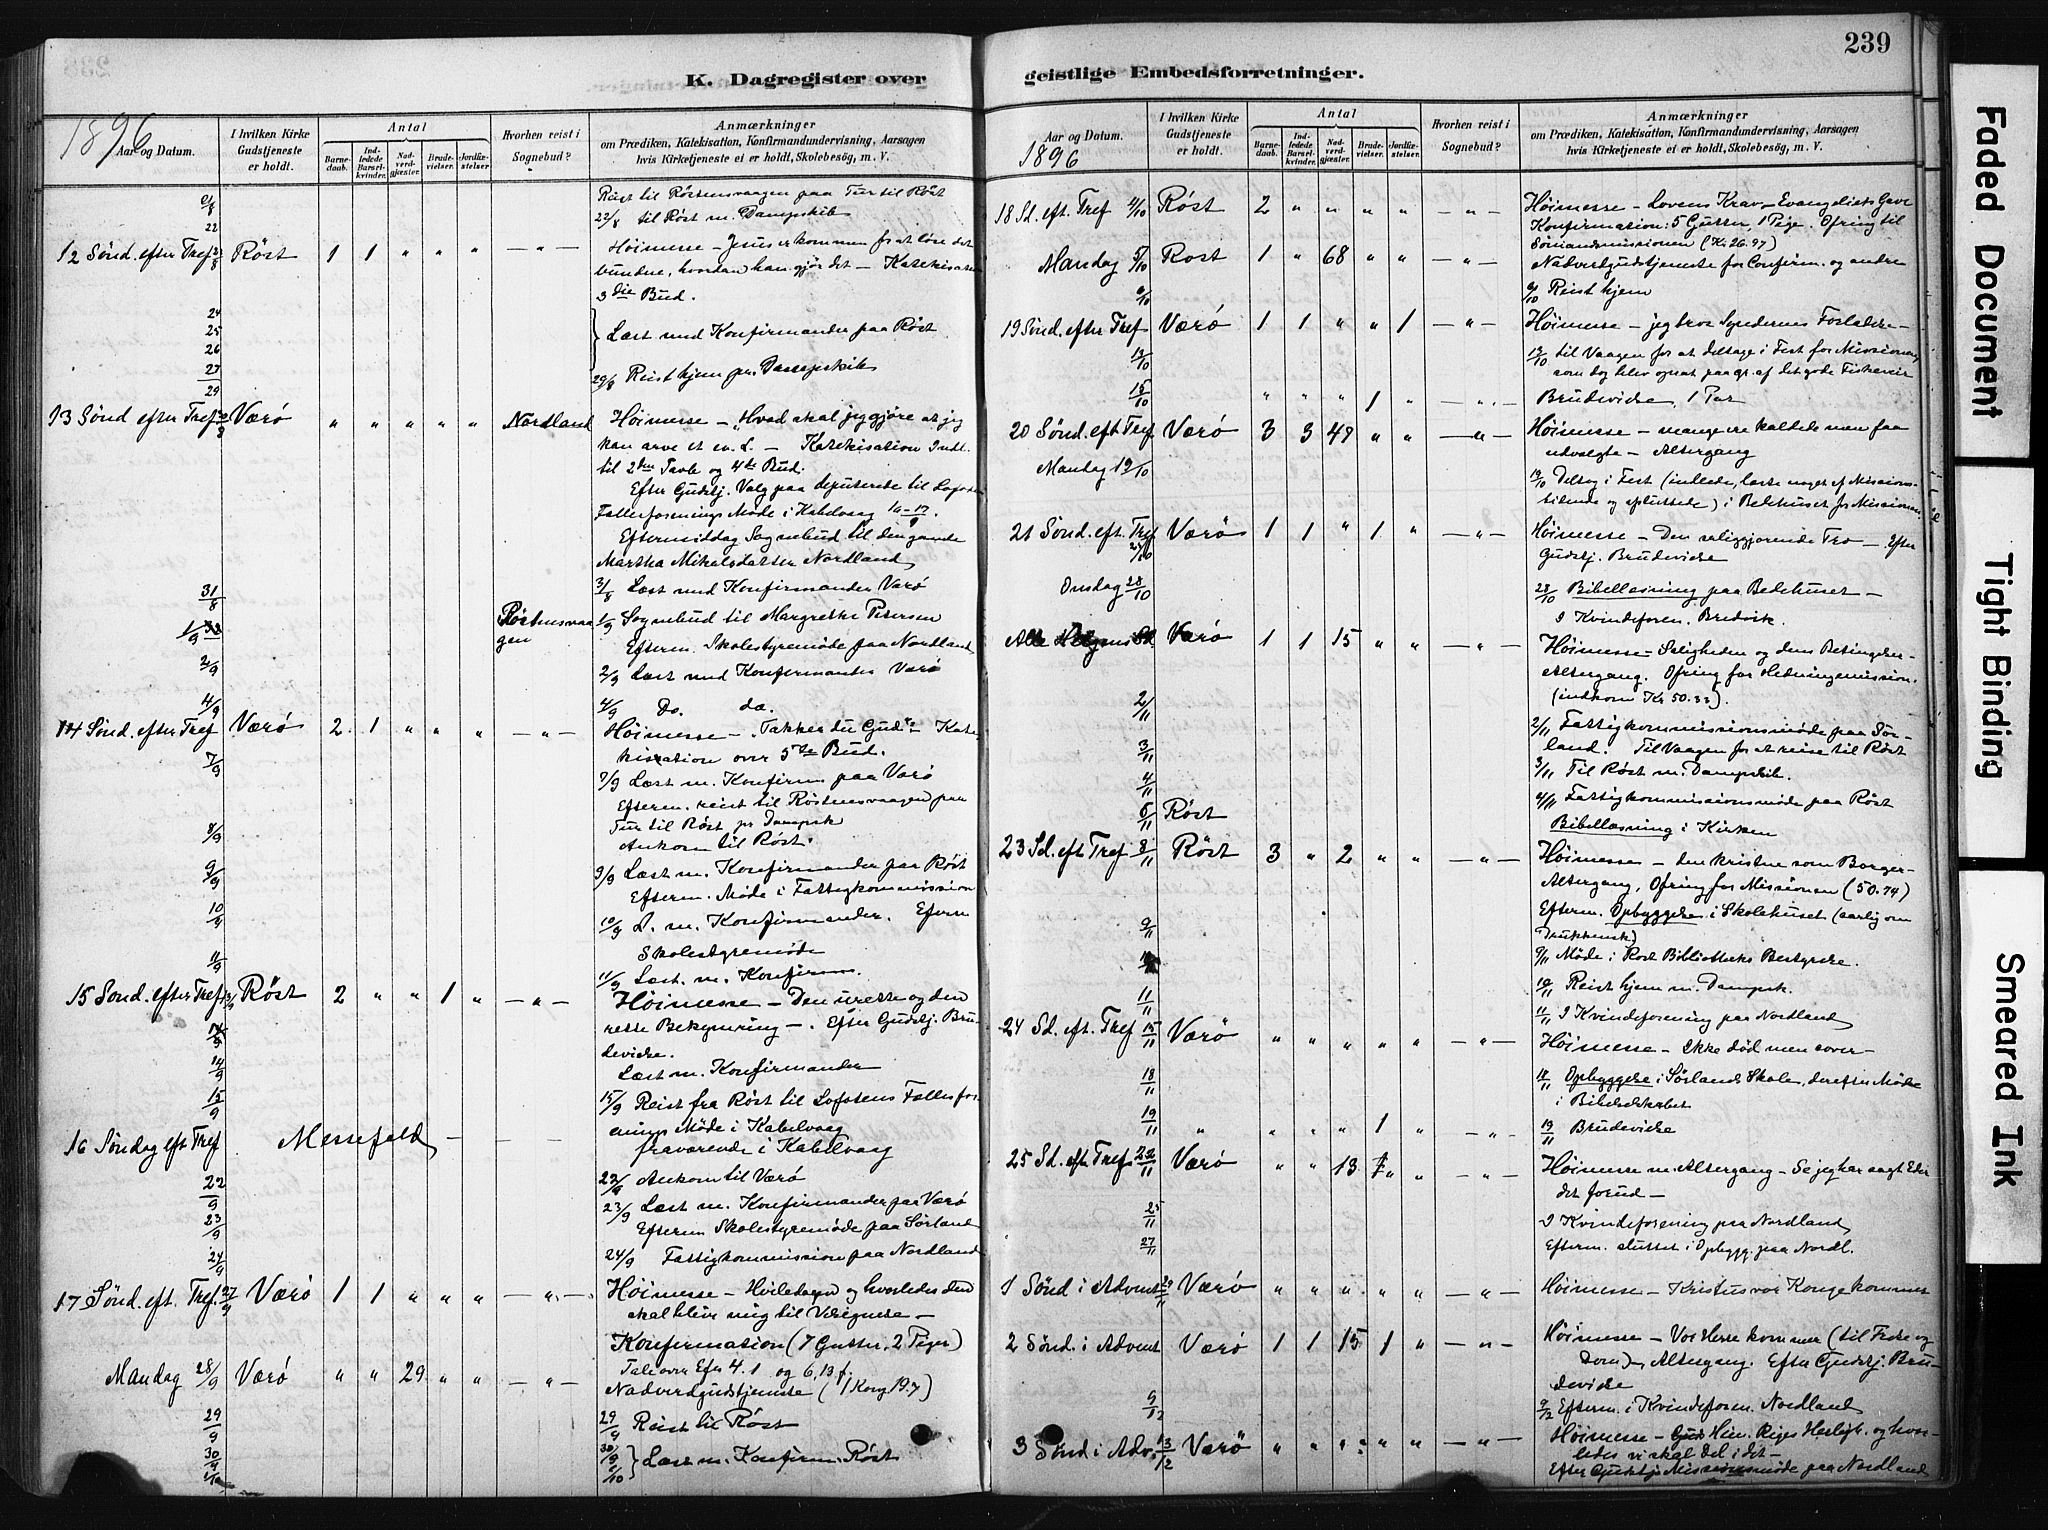 239
K. Dagregister over
geistlige Embedsforretninger.
1896
Aar og Datum.
I hvilken Kirke Gudstjeneste er holdt.
Antal
Barnedaab.
Indledede Barselkvinder.
Nadverdgjæster.
Brudevielser.
Jordfæstelser
Hvorhen reist i Sognebud?
Anmærkninger
om Prædiken, Katekisation, Konfirmandundervisning, Aarsagen
hvis Kirketjeneste ei er holdt, Skolebesøg, m. V.
Reist til Røstensvaagen paa Tur til Røst
22/8 til Røst m. Dampskib
12 Sønd. efter Tref Røst 1 1 " " " — " — Høimesse – Jesus er kommen for at løse det
bundne, hvordan han gjør det – Katekisation
3die Bud.
24
25
26
27
29
Læst med Konfirmander paa Røst
29/8 Reist hjem pr. Dampskib
13 Sønd efter Tref Værø " " " " " Nordland Høimesse – Hvad skal jeg gjøre at jeg
kan arve et ev. L. – Katekisation Indl.
til 2den Tavle og 4de Bud.
Efter Gudstj. Valg paa deputerede til Lofoten
Fællesforenings Møde i Kabelvaag
Eftermiddag Sognebud til den gamle
Martha Mikalsdatter Nordland
31/8 Læst med Konfirmander Værø
1/9 Røstnesvaagen 1/9 Sognebud til Margrethe Petersen
Efterm. Skolestyremøde paa Nordland
2/9 2/9 Læst med Konfirmander Værø
4/9 4/9 Do. do.
14 Sønd. efter Tref Værø 2 1 " " " — " — Høimesse – Takker du Gud? – Katekisation over 5te Bud.
7/9 7/9 Læst m. Konfirm paa Værø
Efterm. reist til Røstnesvaagen paa
Tur til Røst pr Dampsk
8/9 Ankom til Røst.
9/9 9/9 Læst m. Konfirmander paa Røst
Efterm. Møde i Fattigkommission
10/9 10/9 L. m. Konfirmander. Efterm
Skolestyremøde
11/9 11/9 Læst. m. Konfirm.
15 Sønd. efter Tref 13/9 Røst 2 " " 1 " — " — Høimesse – Den urette og den
rette Bekymring –. Efter Gudstj. Brudevielse.
14/9 Læst m. Konfirmander
15/9 15/9 Reist fra Røst til Lofotens Fællesforenings Møde i Kabelvaag
16 Søndag eft Tref Messefald — fraværende i Kabelvaag
22/9 22/9 Ankom til Værø
23/9 23/9 Læst m. Konfirmander paa Værø
Efterm Skolestyremøde paa Sørland
24/9 24/9 Fattigkommission paa Nordland
17 Sønd. eft. Tref. 27/9 Værø 1 1 " " " — " — Høimesse – Hviledagen og hvorledes den
skal blive mig til Velsignelse –
Konfirmation (7 Gutter, 2 Piger)
Tale over Efes 4.1 og 6,13 f.
Mandag 28/9 Værø " " 29 " " — " — Nadverdgudstjeneste (1 Kong 19.7)
29/9 29/9 Reist til Røst
30/9 Læst m. Konfirm. Røst
Aar og Datum.
1896
I hvilken Kirke Gudstjeneste er holdt.
Antal
Barnedaab.
Indledede Barselkvinder.
Nadverdgjæster.
Brudevielser.
Jordfæstelser
Hvorhen reist i Sognebud?
Anmærkninger
om Prædiken, Katekisation, Konfirmandundervisning, Aarsagen
hvis Kirketjeneste ei er holdt, Skolebesøg, m. V.
18 Sd. eft. Tref 4/10 Røst 2 " " " " — " — Høimesse – Lovens Krav – Evangeliets Gave
Konfirmation: 5 Gutter, 1 Pige. Ofring til
Sømandsmissionen (Kr 26.97)
Mandag 5/10 Røst 1 " 68 " " — " — Nadverdgudstjeneste for Confirm. og andre
Reist hjem
19 Sønd. efter Tref Værø 1 1 " " 1 — " — Høimesse – jeg tror Syndernes Forladelse –
til Vaagen for at deltage i Fest for Missionen
som dog blev opsat paa gr. af det gode Fiskeveir
15/10 " " " 1 " — " — Brudevielse, 1 Par
20 Sønd. eft Tref. Værø 3 3 49 " " — " — Høimesse – mange ere kaldede men faa
udvalgte – Altergang
Mandag 19/10 19/10 Deltog i Fest (indlede, læste noget af Missionstidende og afsluttede) i Bedehuset for Missionen
21 Sønd. eft. Tref 25/10 Værø 1 1 " 1 " — " — Høimesse – Den saliggjørende Tro – Efter
Gudstj. Brudevielse
Onsdag 28/10 28/10 Bibellæsning paa Bedehuset –
I Kvindeforen. Bredvik.
Alle Helgens Sd. Værø 1 1 15 " " — " — Høimesse – Saligheden og dens Betingelser –
Altergang. Ofring for Hedningemission.
(indkom Kr 50.33).
2/11 2/11 Fattigkommissionsmøde paa Sørland. Til Vaagen for at reise til Røst
3/11 3/11 Til Røst m. Dampskib.
4/11 4/11 Fattigkommissionsmøde paa Røst
6/11 Røst Bibellæsning i Kirken
23 Sd. eft Tref 8/11 Røst 3 " 2 " " — " — Høimesse – den kristne som Borger –
Altergang, Ofring for Missionen (50.74)
Efterm. Opbyggelse i Skolehuset (særlig om
Drukkensk)
9/11 9/11 Møde i Røst Bibliotheks Bestyrelse.
10/11 Reist hjem m. Dampsk.
11/11 11/11 I Kvindeforening paa Nordland
24 Sd. eft. Tref 15/11 Værø " " " " " — " — Høimesse – Ikke død men sover –
18/11 18/11 Opbyggelse i Sørlands Skole, derefter Møde
i Bibelselskabet
19/11 " " " " 1 " — " — 19/11 Brudevielse
25 Sd. efter Tref 22/11 Værø " " 13 " — " — Høimesse m. Altergang – Se jeg har sagt Eder
det forud –
25/11 I Kvindeforening paa Nordland
27/11 Efterm. sluttet i Opbygg. paa Nordl.
1 Sønd i Advent 29/11 Værø " " " " " — " — Høimesse – Kristus vor Konge kommer
2 Sønd. i Advent Værø 1 1 15 1 " — " — Høimesse – Vor Herre kommer (til Frelse og
Dom) – Altergang. Efter Gudstj. Brudevielse
9/12 9/12 Efterm. i Kvindeforen. Nordland
3 Sønd i Adv. 13/12 Værø " " " " " — " — Høimesse – Him. Riges Herligh. og hvorledes vi skal Del i det –
Efter Gudstj. Missionsmøde paa Nordland
Faded Document
Tight Binding
Smeared Ink